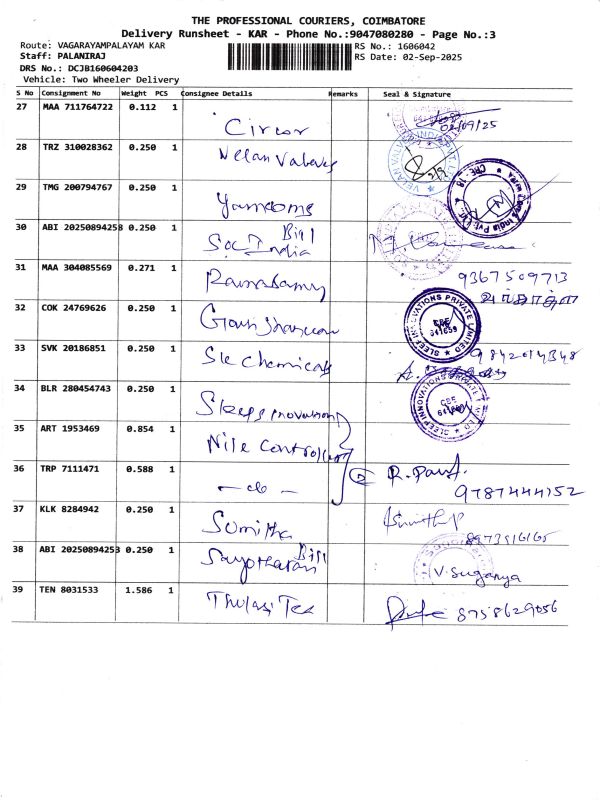 THE PROFESSIONAL COURIERS, COIMBATORE
Delivery Runsheet - KAR - Phone No.:9047080280 - Page No.:3
Route: VAGARAYAMPALAYAM KAR
RS No.: 1606042
Staff: PALANIRAJ
RS Date: 02-Sep-2025
DRS No.: DCJB160604203
Vehicle: Two Wheeler Delivery
S No Consignment No Weight PCS Consignee Details Remarks Seal & Signature
27 MAA 711764722 0.112 1
02/09/25
28 TRZ 310028362 0.250 1
2/9
29 TMG 200794767 0.250 1
30 ABI 20250894258 0.250 1
Bill
India
31 MAA 304085569 0.271 1
Ramasamy
9367509713
32 COK 24769626 0.250 1
SLEEP INNOVATIONS PRIVATE LIMITED
CBE
641659
33 SVK 20186851 0.250 1
Sle Chemicals
9842014348
34 BLR 280454743 0.250 1
SLEEP INNOVATIONS PRIVATE LIMITED
CBE
35 ART 1953469 0.854 1
Nile Controller
36 TRP 7111471 0.588 1
- do -
9787444152
37 KLK 8284942 0.250 1
Sumithra
38 ABI 20250894253 0.250 1
Bill
V. Suganya
39 TEN 8031533 1.586 1
Thulasi Tex
8758629056